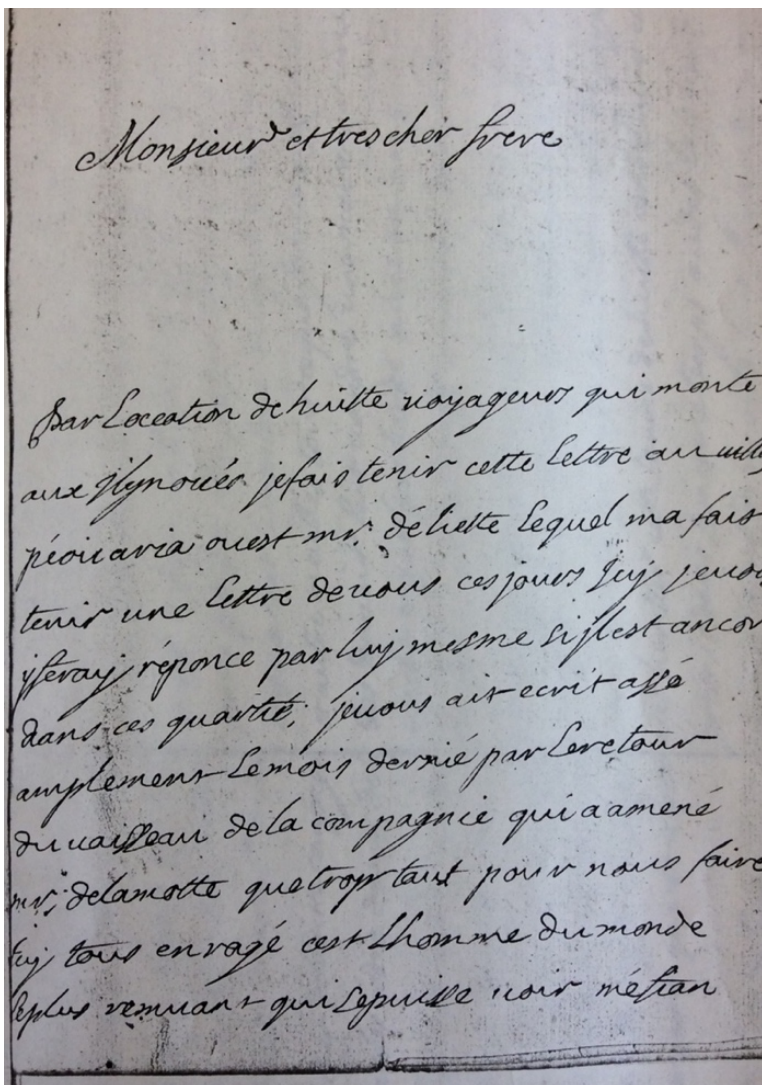 Monsieur et tres cher frere
Par Loccation de huitte voyageurs qui monte
aux jlynoués je fais tenir cette lettre au
péouaria ou est mr. déliette lequel ma fait
tenir une lettre de vous ces jours jcy je vous
y feray réponce par luy mesme si jl est ancor
dans ces quartié, je vous ait ecrit assé
amplement le mois dernié par le retour
du vaisseau de la compagnie qui a amené
mr. de lamotte que trop taust pour nous faire
jcy tous enragé cest Lhomme du monde
le plus remuant qui se puisse voir méfian